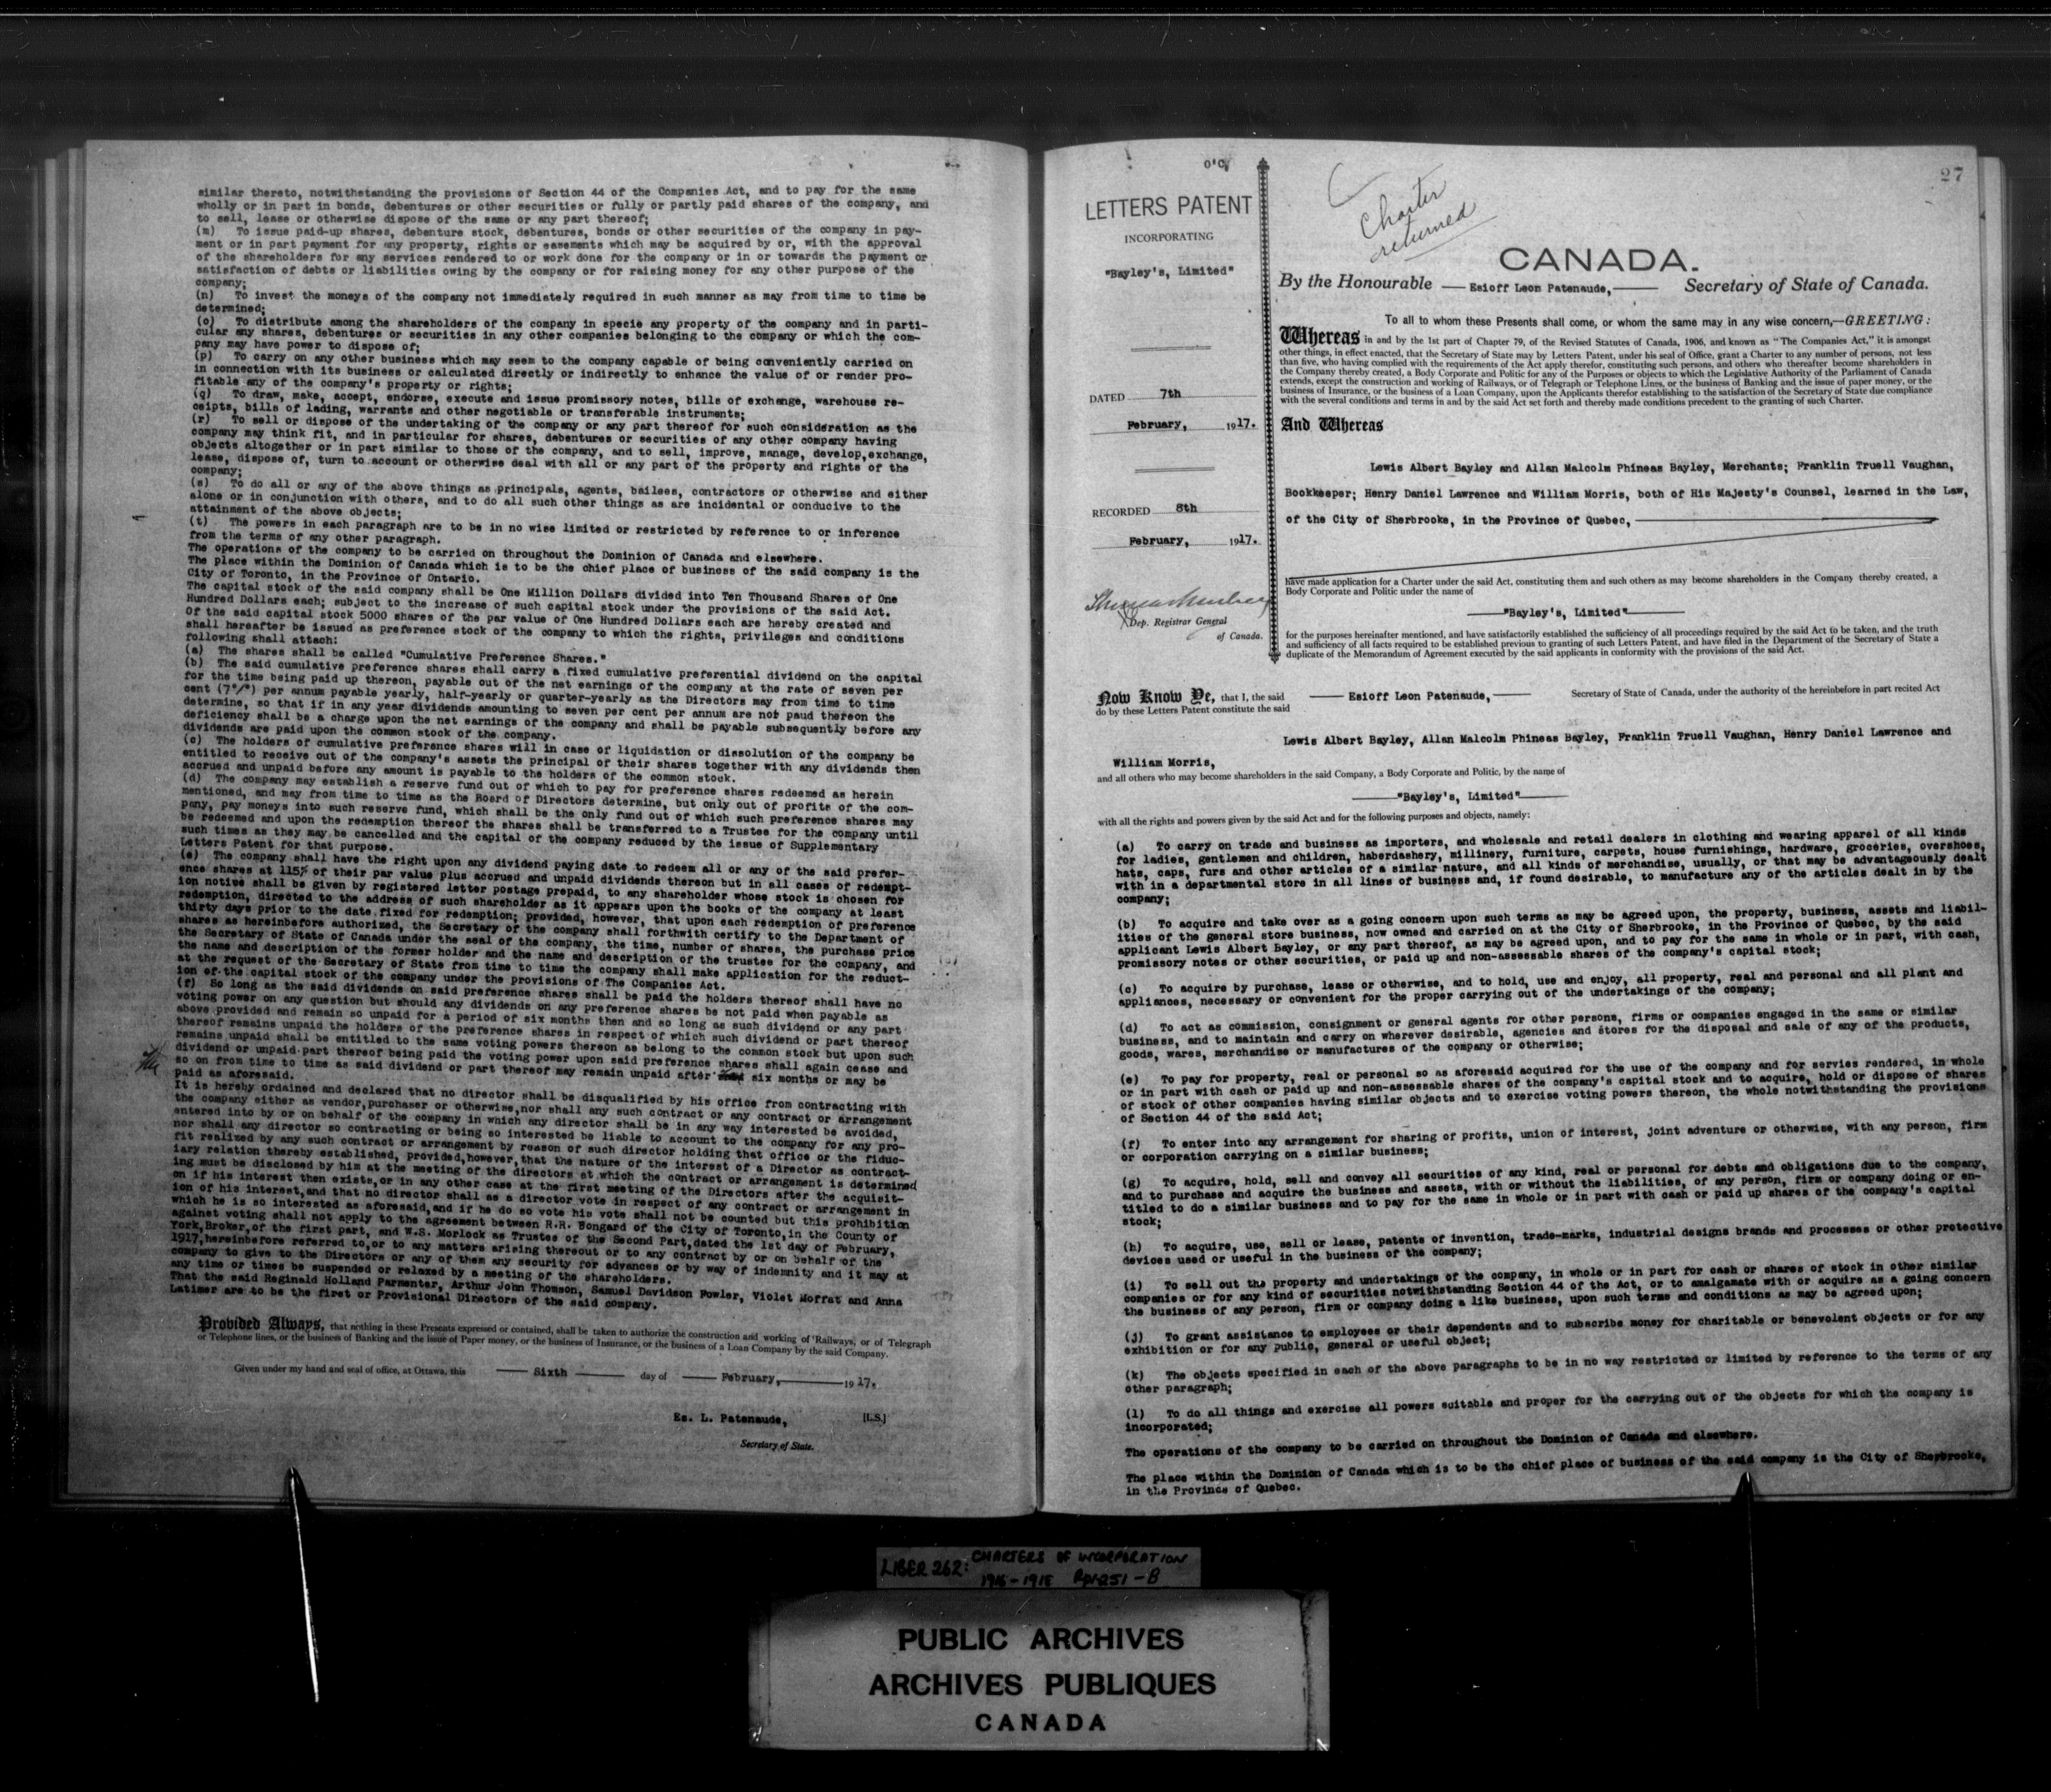 similar thereto, notwithstanding the provisions of Section 44 of the Companies Act, and to pay for the same
wholly or in part in bonds, debentures or other securities or fully or partly paid shares of the company, and
to sell, lease or otherwise dispose of the same or any part thereof;
(m) To issue paid-up shares, debenture stock, debentures, bonds or other securities of the company in pay-
ment or in part payment for any property, rights or easements which may be acquired by or, with the approval
of the shareholders for any services rendered to or work done for the company or in or towards the payment or
satisfaction of debts or liabilities owing by the company or for raising money for any other purpose of the
company;
(n) To invest the moneys of the company not immediately required in such manner as may from time to time be
determined;
(o) To distribute among the shareholders of the company in specie any property of the company and in parti-
cular any shares, debentures or securities in any other companies belonging to the company or which the com-
pany may have power to dispose of;
(p) To carry on any other business which may seem to the company capable of being conveniently carried on
in connection with its business or calculated directly or indirectly to enhance the value of or render pro-
fitable any of the company's property or rights;
(q) To draw, make, accept, endorse, execute and issue promissory notes, bills of exchange, warehouse re-
ceipts, bills of lading, warrants and other negotiable or transferable instruments;
(r) To sell or dispose of the undertaking of the company or any part thereof for such consideration as the
company may think fit, and in particular for shares, debentures or securities of any other company having
objects altogether or in part similar to those of the company, and to sell, improve, manage, develop,exchange,
lease, dispose of, turn to account or otherwise deal with all or any part of the property and rights of the
company;
(s) To do all or any of the above things as principals, agents, bailees, contractors or otherwise and either
alone or in conjunction with others, and to do all such other things as are incidental or conducive to the
attainment of the above objects;
(t) The powers in each paragraph are to be in no wise limited or restricted by reference to or inference
from the terms of any other paragraph.
The operations of the company to be carried on throughout the Dominion of Canada and elsewhere.
The place within the Dominion of Canada which is to be the chief place of business of the said company is the
City of Toronto, in the Province of Ontario.
The capital stock of the said company shall be One Million Dollars divided into Ten Thousand Shares of One
Hundred Dollars each; subject to the increase of such capital stock under the provisions of the said Act.
Of the said capital stock 5000 shares of the par value of One Hundred Dollars each are hereby created and
shall hereafter be issued as preference stock of the company to which the rights, privileges and conditions
following shall attach:
(a) The shares shall be called "Cumulative Preference Shares."
(b) The said cumulative preference shares shall carry a fixed cumulative preferential dividend on the capital
for the time being paid up thereon, payable out of the net earnings of the company at the rate of seven per
cent (7°/°) per annum payable yearly, half-yearly or quarter-yearly as the Directors may from time to time
determine, so that if in any year dividends amounting to seven per cent per annum are not paud thereon the
deficiency shall be a charge upon the net earnings of the company and shall be payable subsequently before any
dividends are paid upon the common stock of the company.
(c) The holders of cumulative preference shares will in case of liquidation or dissolution of the company be
entitled to receive out of the company's assets the principal of their shares together with any dividends then
accrued and unpaid before any amount is payable to the holders of the common stock.
(d) The company may establish a reserve fund out of which to pay for preference shares redeemed as herein
mentioned, and may from time to time as the Board of Directors determine, but only out of profits of the com-
pany, pay moneys into such reserve fund, which shall be the only fund out of which such preference shares may
be redeemed and upon the redemption thereof the shares shall be transferred to a Trustee for the company until
such times as they may be cancelled and the capital of the company reduced by the issue of Supplementary
Letters Patent for that purpose.
(e) The company shall have the right upon any dividend paying date to redeem all or any of the said prefer-
ence shares at 115% of their par value plus accrued and unpaid dividends thereon but in all cases of redempt-
ion notive shall be given by registered letter postage prepaid, to any shareholder whose stock is chosen for
redemption, directed to the address of such shareholder as it appears upon the books of the company at least
thirty days prior to the date fixed for redemption; provided, however, that upon each redemption of preference
shares as hereinbefore authorized, the Secretary of the company shall forthwith certify to the Department of
the Secretary of State of Canada under the seal of the company, the time, number of shares, the purchase price
the name and description of the former holder and the name and description of the trustee for the company, and
at the request of the Secretary of State from time to time the company shall make application for the reduct-
ion of the capital stock of the company under the provisions of The Companies Act.
(f) So long as the said dividends on said preference shares shall be paid the holders thereof shall have no
voting power on any question but should any dividends on any preference shares be not paid when payable as
above provided and remain so unpaid for a period of six months then and so long as such dividend or any part
thereof remains unpaid the holders of the preference shares in respect of which such dividend or part thereof
remains unpaid shall be entitled to the same voting powers thereon as belong to the common stock but upon such
dividend or unpaid part thereof being paid the voting power upon said preference shares shall again cease and
so on from time to time as said dividend or part thereof may remain unpaid after six months or may be
paid as aforesaid.
It is hereby ordained and declared that no director shall be disqualified by his office from contracting with
the company either as vendor,purchaser or otherwise,nor shall any such contract or any contract or arrangement
entered into by or on behalf of the company in which any director shall be in any way interested be avoided,
nor shall any director so contracting or being so interested be liable to account to the company for any pro-
fit realized by any such contract or arrangement by reason of such director holding that office or the fiduc-
iary relation thereby established, provided,however,that the nature of the interest of a Director as contract-
ing must be disclosed by him at the meeting of the directors at which the contract or arrangement is determined
on if his interest then exists,or in any other case at the first meeting of the Directors after the acquisit-
ion of his interest,and that no director shall as a director vote in respect of any contract or arrangement in
which he is so interested as aforesaid,and if he do so vote his vote shall not be counted but this prohibition
against voting shall not apply to the agreement between R.R. Bongard of the City of Toronto,in the County of
York,Broker,of the first part, and W.S. Morlock as Trustee of the Second Part,dated the 1st day of February,
1917,hereinbefore referred to,or to any matters arising thereout or to any contract by or on behalf of the
company to give to the Directors or any of them any security for advances or by way of indemnity and it may at
any time or times be suspended or relaxed by a meeting of the shareholders.
That the said Reginald Holland Parmenter, Arthur John Thomson, Samuel Davidson Fowler, Violet Moffat and Anna
Latimer are to be the first or Provisional Directors of the said company.
Provided Always, that nothing in these Presents expressed or contained, shall be taken to authorize the construction and working of Railways, or of Telegraph
or Telephone lines, or the business of Banking and the issue of Paper money, or the business of Insurance, or the business of a Loan Company by the said Company.
Given under my hand and seal of office, at Ottawa, this Sixth day of February, 1917.
Es. L. Patenaude, [L.S.]
Secretary of State.
27
O'C
LETTERS PATENT
INCORPORATING
"Bayley's, Limited"
DATED 7th
February, 1917.
RECORDED 8th
February, 1917.
Dep. Registrar General
of Canada.
Charter
returned
CANADA.
By the Honourable Esioff Leon Patenaude, Secretary of State of Canada.
To all to whom these Presents shall come, or whom the same may in any wise concern,—GREETING:
Whereas in and by the 1st part of Chapter 79, of the Revised Statutes of Canada, 1906, and known as "The Companies Act," it is amongst
other things, in effect enacted, that the Secretary of State may by Letters Patent, under his seal of Office, grant a Charter to any number of persons, not less
than five, who having complied with the requirements of the Act apply therefor, constituting such persons, and others who thereafter become shareholders in
the Company thereby created, a Body Corporate and Politic for any of the Purposes or objects to which the Legislative Authority of the Parliament of Canada
extends, except the construction and working of Railways, or of Telegraph or Telephone Lines, or the business of Banking and the issue of paper money, or the
business of Insurance, or the business of a Loan Company, upon the Applicants therefor establishing to the satisfaction of the Secretary of State due compliance
with the several conditions and terms in and by the said Act set forth and thereby made conditions precedent to the granting of such Charter.
And Whereas
Lewis Albert Bayley and Allan Malcolm Phineas Bayley, Merchants; Franklin Truell Vaughan,
Bookkeeper; Henry Daniel Lawrence and William Morris, both of His Majesty's Counsel, learned in the Law,
of the City of Sherbrooke, in the Province of Quebec,
have made application for a Charter under the said Act, constituting them and such others as may become shareholders in the Company thereby created, a
Body Corporate and Politic under the name of
"Bayley's, Limited"
for the purposes hereinafter mentioned, and have satisfactorily established the sufficiency of all proceedings required by the said Act to be taken, and the truth
and sufficiency of all facts required to be established previous to granting of such Letters Patent, and have filed in the Department of the Secretary of State a
duplicate of the Memorandum of Agreement executed by the said applicants in conformity with the provisions of the said Act.
Now Know Ye, that I, the said Esioff Leon Patenaude, Secretary of State of Canada, under the authority of the hereinbefore in part recited Act
do by these Letters Patent constitute the said
Lewis Albert Bayley, Allan Malcolm Phineas Bayley, Franklin Truell Vaughan, Henry Daniel Lawrence and
William Morris,
and all others who may become shareholders in the said Company, a Body Corporate and Politic, by the name of
"Bayley's, Limited"
with all the rights and powers given by the said Act and for the following purposes and objects, namely:
(a) To carry on trade and business as importers, and wholesale and retail dealers in clothing and wearing apparel of all kinds
for ladies, gentlemen and children, haberdashery, millinery, furniture, carpets, house furnishings, hardware, groceries, overshoes,
hats, caps, furs and other articles of a similar nature, and all kinds of merchandise, usually, or that may be advantageously dealt
with in a departmental store in all lines of business and, if found desirable, to manufacture any of the articles dealt in by the
company;
(b) To acquire and take over as a going concern upon such terms as may be agreed upon, the property, business, assets and liabil-
ities of the general store business, now owned and carried on at the City of Sherbrooke, in the Province of Quebec, by the said
applicant Lewis Albert Bayley, or any part thereof, as may be agreed upon, and to pay for the same in whole or in part, with cash,
promissory notes or other securities, or paid up and non-assessable shares of the company's capital stock;
(c) To acquire by purchase, lease or otherwise, and to hold, use and enjoy, all property, real and personal and all plant and
appliances, necessary or convenient for the proper carrying out of the undertakings of the company;
(d) To act as commission, consignment or general agents for other persons, firms or companies engaged in the same or similar
business, and to maintain and carry on wherever desirable, agencies and stores for the disposal and sale of any of the products,
goods, wares, merchandise or manufactures of the company or otherwise;
(e) To pay for property, real or personal so as aforesaid acquired for the use of the company and for servies rendered, in whole
or in part with cash or paid up and non-assessable shares of the company's capital stock and to acquire, hold or dispose of shares
of stock of other companies having similar objects and to exercise voting powers thereon, the whole notwithstanding the provisions
of Section 44 of the said Act;
(f) To enter into any arrangement for sharing of profits, union of interest, joint adventure or otherwise, with any person, firm
or corporation carrying on a similar business;
(g) To acquire, hold, sell and convey all securities of any kind, real or personal for debts and obligations due to the company,
and to purchase and acquire the business and assets, with or without the liabilities, of any person, firm or company doing or en-
titled to do a similar business and to pay for the same in whole or in part with cash or paid up shares of the company's capital
stock;
(h) To acquire, use, sell or lease, patents of invention, trade-marks, industrial designs brands and processes or other protective
devices used or useful in the business of the company;
(i) To sell out the property and undertakings of the company, in whole or in part for cash or shares of stock in other similar
companies or for any kind of securities notwithstanding Section 44 of the Act, or to amalgamate with or acquire as a going concern
the business of any person, firm or company doing a like business, upon such terms and conditions as may be agreed upon;
(j) To grant assistance to employees or their dependents and to subscribe money for charitable or benevolent objects or for any
exhibition or for any public, general or useful object;
(k) The objects specified in each of the above paragraphs to be in no way restricted or limited by reference to the terms of any
other paragraph;
(l) To do all things and exercise all powers suitable and proper for the carrying out of the objects for which the company is
incorporated;
The operations of the company to be carried on throughout the Dominion of Canada and elsewhere.
The place within the Dominion of Canada which is to be the chief place of business of the said company is the City of Sherbrooke,
in the Province of Quebec.
LIBER 262: CHARTERS OF INCORPORATION
PUBLIC ARCHIVES
ARCHIVES PUBLIQUES
CANADA